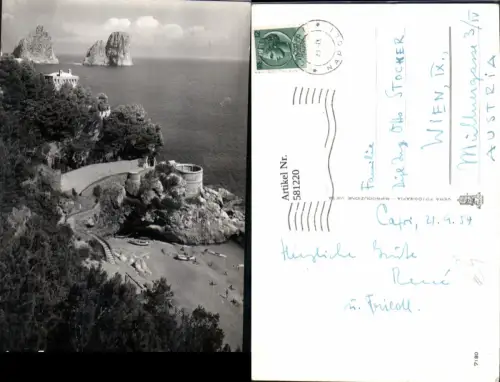 Artikel Nr.
581220
Familie
Dipl. Ing. Otto STOCKER
WIEN, IX.,
3/IV
AUSTRIA
Capri, 21.9.54
Herzliche Grüße
René
u. Friedl.
7180